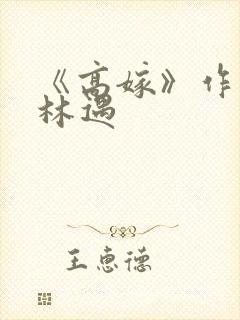 《高嫁》作
林遇
王惠德